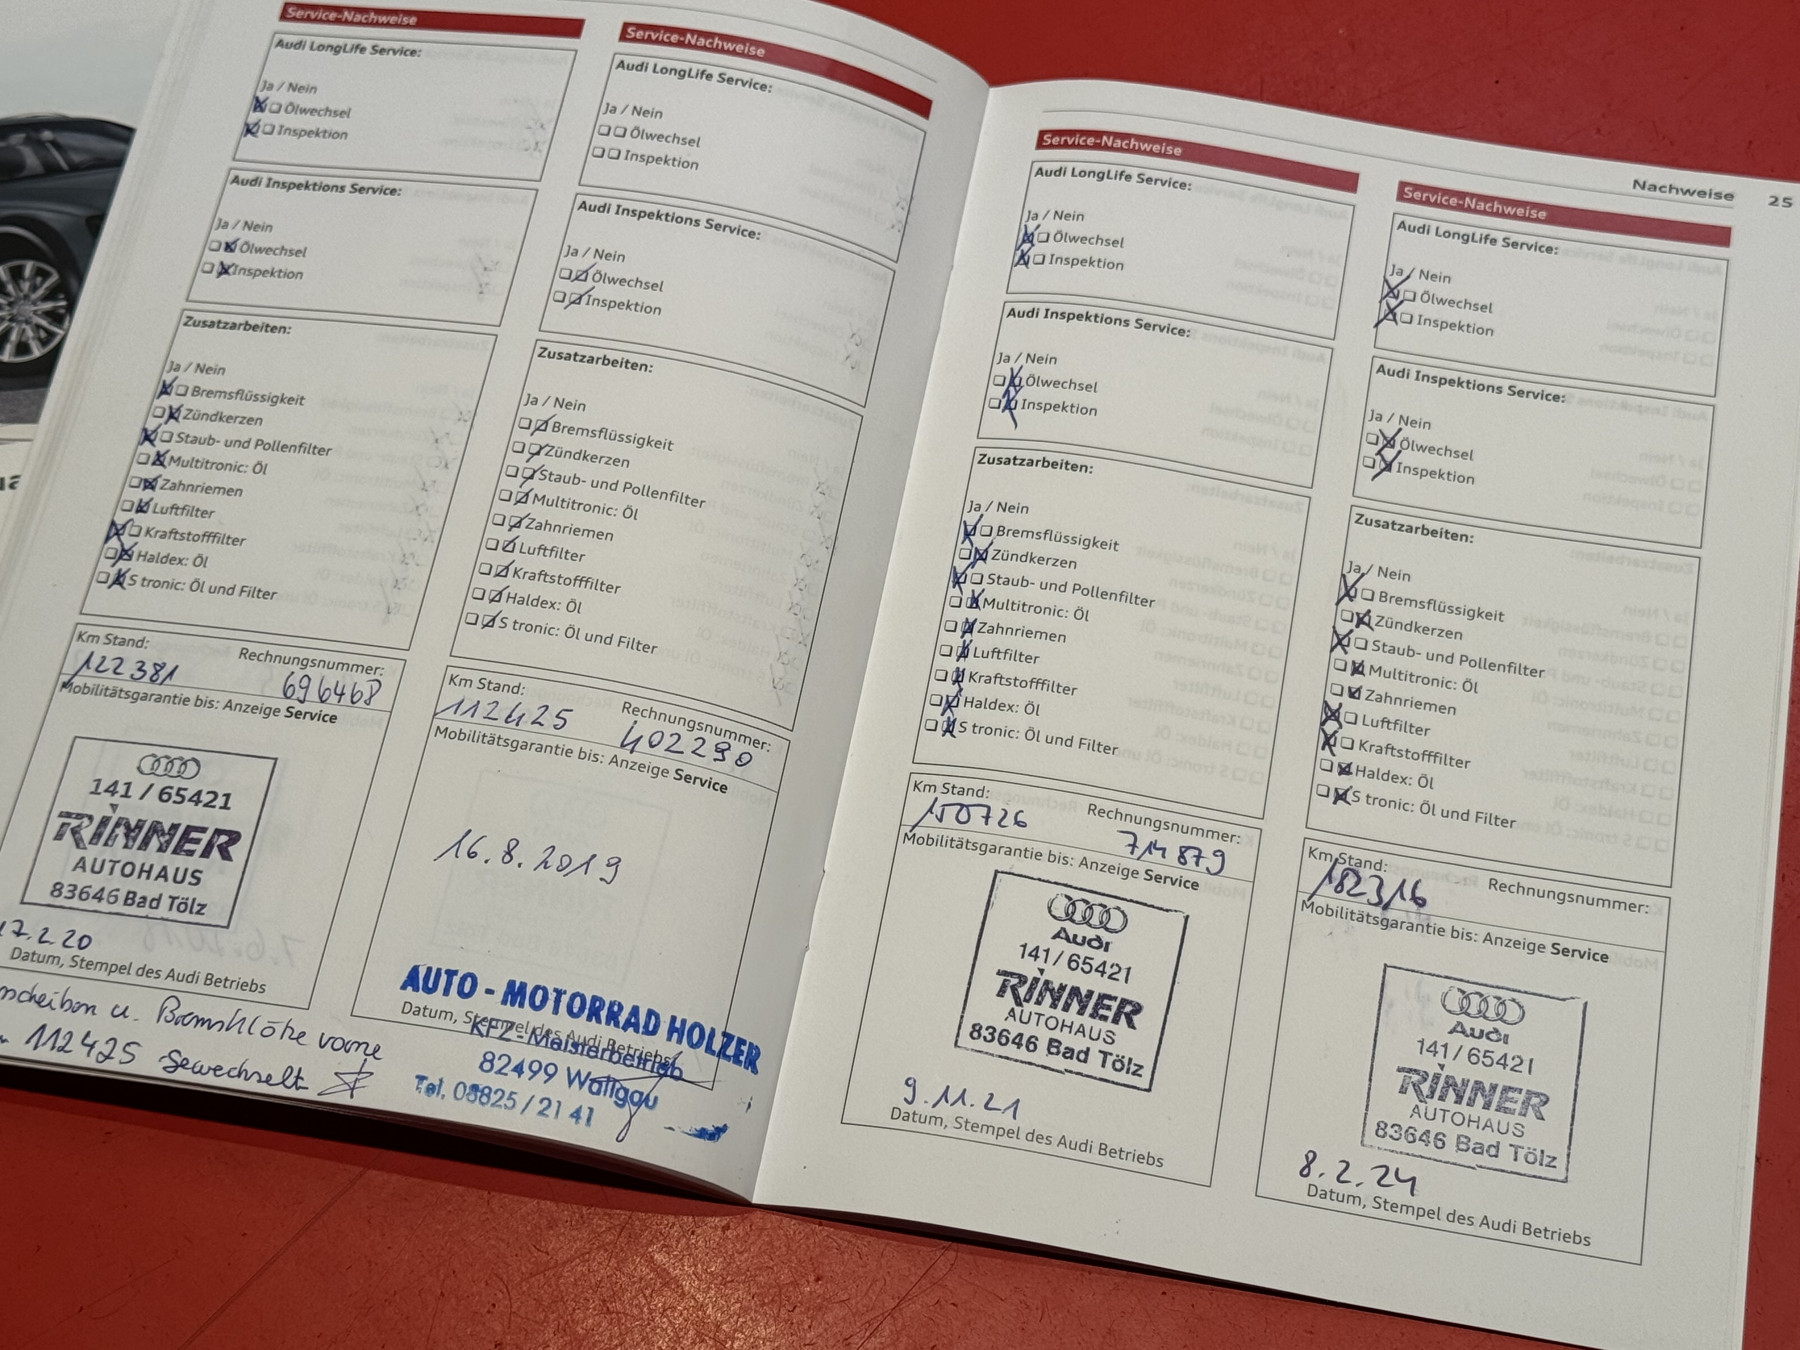 Service-Nachweise
Audi LongLife Service:
Ja / Nein
Ölwechsel
Inspektion
Audi Inspektions Service:
Ja / Nein
Ölwechsel
Inspektion
Zusatzarbeiten:
Ja / Nein
Bremsflüssigkeit
Zündkerzen
Staub- und Pollenfilter
Multitronic: Öl
Zahnriemen
Luftfilter
Kraftstofffilter
Haldex: Öl
S tronic: Öl und Filter
Km Stand:
Rechnungsnummer:
122381
696468
Mobilitätsgarantie bis: Anzeige Service
141 / 65421
RINNER
AUTOHAUS
83646 Bad Tölz
17.2.20
Datum, Stempel des Audi Betriebs
u. Bremsklötze vorne
112425 gewechselt
Service-Nachweise
Audi LongLife Service:
Ja / Nein
Ölwechsel
Inspektion
Audi Inspektions Service:
Ja / Nein
Ölwechsel
Inspektion
Zusatzarbeiten:
Ja / Nein
Bremsflüssigkeit
Zündkerzen
Staub- und Pollenfilter
Multitronic: Öl
Zahnriemen
Luftfilter
Kraftstofffilter
Haldex: Öl
S tronic: Öl und Filter
Km Stand:
Rechnungsnummer:
112425
402290
Mobilitätsgarantie bis: Anzeige Service
16.8.2019
AUTO - MOTORRAD HOLZER
Datum, Stempel des Audi Betriebs
KFZ-Meisterbetrieb
82499 Wallgau
Tel. 08825 / 21 41
Nachweise 25
Service-Nachweise
Audi LongLife Service:
Ja / Nein
Ölwechsel
Inspektion
Audi Inspektions Service:
Ja / Nein
Ölwechsel
Inspektion
Zusatzarbeiten:
Ja / Nein
Bremsflüssigkeit
Zündkerzen
Staub- und Pollenfilter
Multitronic: Öl
Zahnriemen
Luftfilter
Kraftstofffilter
Haldex: Öl
S tronic: Öl und Filter
Km Stand:
Rechnungsnummer:
150726
714879
Mobilitätsgarantie bis: Anzeige Service
Audi
141/65421
RINNER
AUTOHAUS
83646 Bad Tölz
9.11.21
Datum, Stempel des Audi Betriebs
Service-Nachweise
Audi LongLife Service:
Ja / Nein
Ölwechsel
Inspektion
Audi Inspektions Service:
Ja / Nein
Ölwechsel
Inspektion
Zusatzarbeiten:
Ja / Nein
Bremsflüssigkeit
Zündkerzen
Staub- und Pollenfilter
Multitronic: Öl
Zahnriemen
Luftfilter
Kraftstofffilter
Haldex: Öl
S tronic: Öl und Filter
Km Stand:
Rechnungsnummer:
182316
Mobilitätsgarantie bis: Anzeige Service
Audi
141/65421
RINNER
AUTOHAUS
83646 Bad Tölz
8.2.24
Datum, Stempel des Audi Betriebs